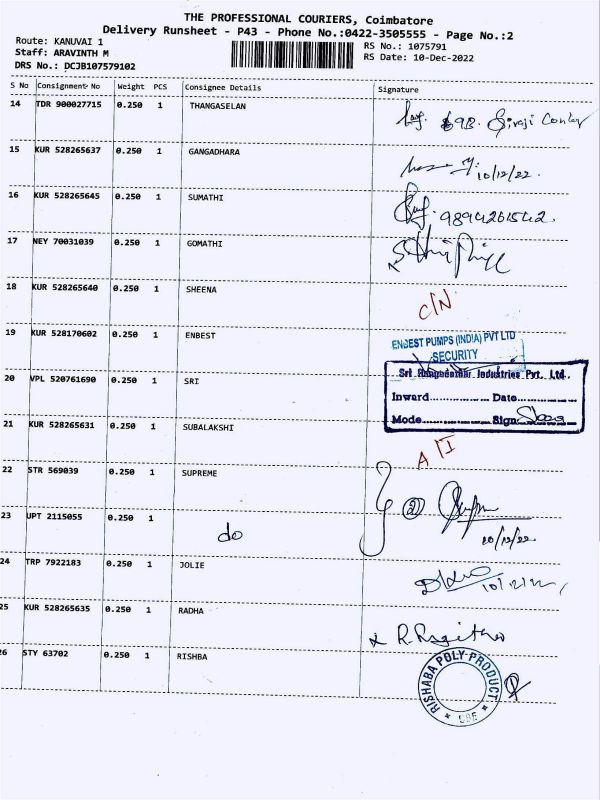 THE PROFESSIONAL COURIERS, Coimbatore
Delivery Runsheet - P43 - Phone No.:0422-3505555 - Page No.:2
Route: KANUVAI 1
RS No.: 1075791
Staff: ARAVINTH M
RS Date: 10-Dec-2022
DRS No.: DCJB107579102
S No Consignment No Weight PCS Consignee Details Signature
14 TDR 900027715 0.250 1 THANGASELAN
15 KUR 528265637 0.250 1 GANGADHARA 10/12/22.
16 KUR 528265645 0.250 1 SUMATHI 9894261542.
17 NEY 70031039 0.250 1 GOMATHI
18 KUR 528265640 0.250 1 SHEENA C/N
19 KUR 528170602 0.250 1 ENBEST
ENBEST PUMPS (INDIA) PVT LTD
SECURITY
20 VPL 520761690 0.250 1 SRI
Sri Industries Pvt. Ltd.
Inward Date
Mode Sign
21 KUR 528265631 0.250 1 SUBALAKSHI
22 STR 569039 0.250 1 SUPREME
23 UPT 2115055 0.250 1 do 10/12/22
24 TRP 7922183 0.250 1 JOLIE
25 KUR 528265635 0.250 1 RADHA
26 STY 63702 0.250 1 RISHBA
RISHABA POLY-PRODUCT
CBE